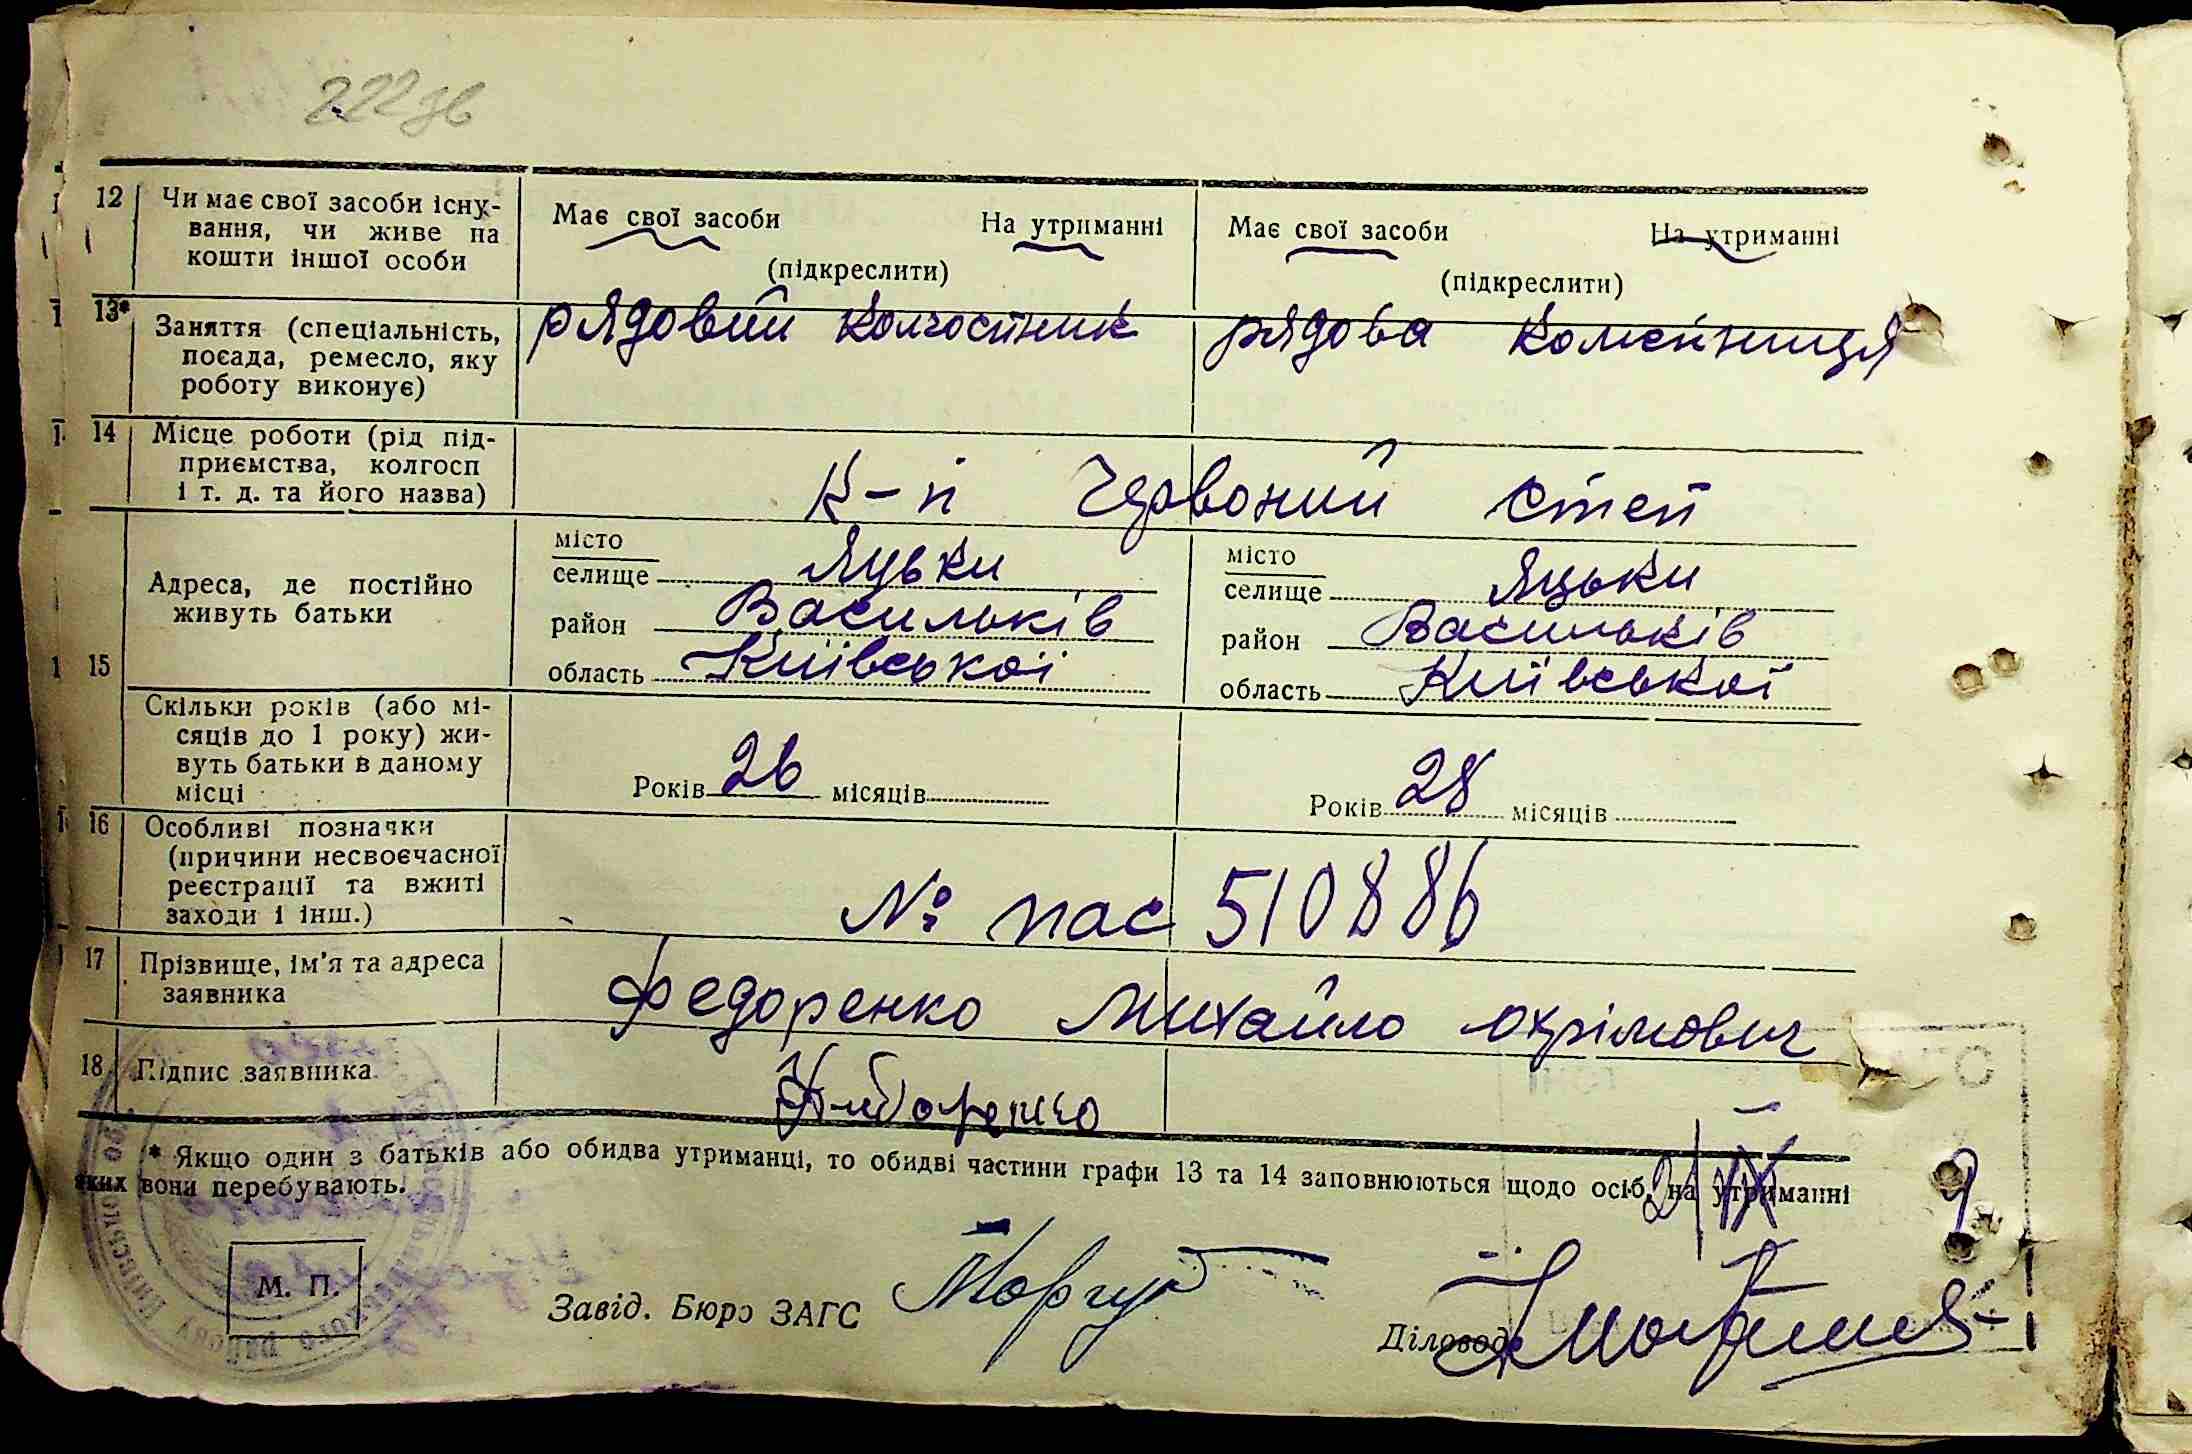 222зв
12 Чи має свої засоби існу-
вання, чи живе на
кошти іншої особи
Має свої засоби На утриманні
(підкреслити)
Має свої засоби На утриманні
(підкреслити)
13* Заняття (спеціальність,
посада, ремесло, яку
роботу виконує)
рядовий колгоспник
рядова
14 Місце роботи (рід під-
приємства, колгосп
і т. д. та його назва)
к-п Червоний степ
15 Адреса, де постійно
живуть батьки
місто
селище Яцьки
район Васильків
область Київської
місто
селище Яцьки
район Васильків
область Київської
Скільки років (або мі-
сяців до 1 року) жи-
вуть батьки в даному
місці
Років 26 місяців
Років 28 місяців
16 Особливі позначки
(причини несвоєчасної
реєстрації та вжиті
заходи і інш.)
№ пас 510886
17 Прізвище, ім'я та адреса
заявника
Федоренко Михайло Охрімович
18 Підпис заявника
* Якщо один з батьків або обидва утриманці, то обидві частини графи 13 та 14 заповнюються щодо осіб, на утриманні
яких вони перебувають.
М. П.
Завід. Бюро ЗАГС
Діловод